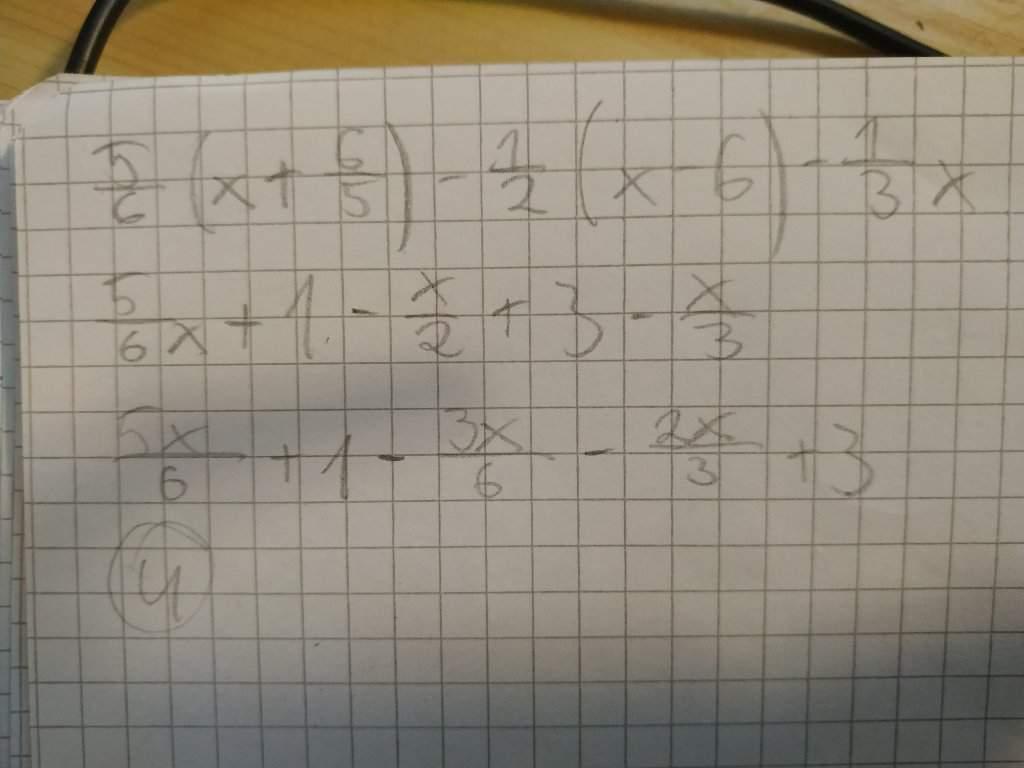 5/6 (x + 6/5) - 1/2 (x - 6) - 1/3 x
5/6 x + 1 - x/2 + 3 - x/3
5x/6 + 1 - 3x/6 - 2x/3 + 3
4